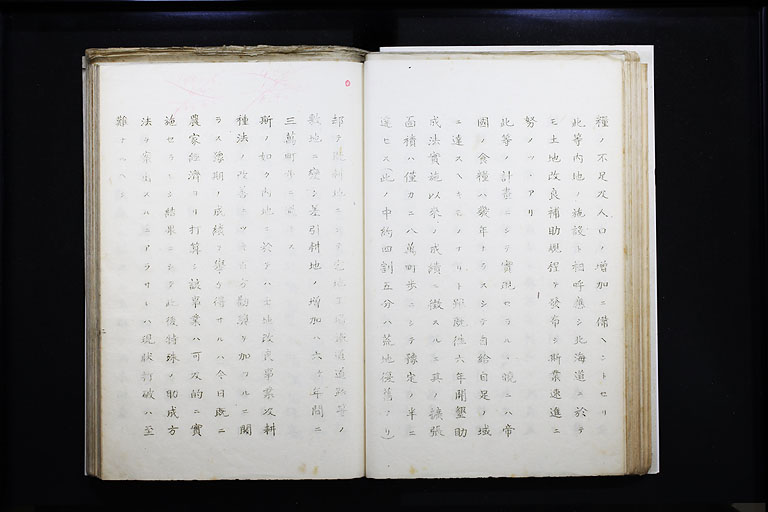 糧ノ不足及人口ノ増加ニ備ヘントセリ
此等内地ノ施設ト相呼應シ北海道ニ於テ
モ土地改良補助規程ヲ發布シ斯業速進ニ
努メツヽアリ
此等ノ計畫ニシテ實現セラルヽ曉ニハ帝
國ノ食糧ハ幾年ナラスシテ自給自足ノ域
ニ達スヘキモノナリト雖既徃六年開墾助
成法實施以來ノ成績ニ徴スルニ其ノ擴張
面積ハ僅カニ八萬町歩ニシテ豫定ノ半ニ
達セス此ノ中約四割五分ハ荒地復舊ナリ)
却テ既耕地ニシテ宅地工場鐵道道路等ノ
敷地ニ變シ差引耕地ノ増加ハ六ケ年間ニ
三萬町歩ニ過キス
斯ノ如ク内地ニ於テハ土地改良事業及耕
種法ノ改善ニツキ百方勸奬ヲ加フルニ關
ラス豫期ノ成績ヲ擧ケ得サルハ今日既ニ
農家經濟ヨリ打算シ該事業ハ可及的ニ實
施セラレシ結果ニシテ此後特殊ノ助成方
法ヲ案出スルニアラサレハ現狀打破ハ至
難ナルヘシ